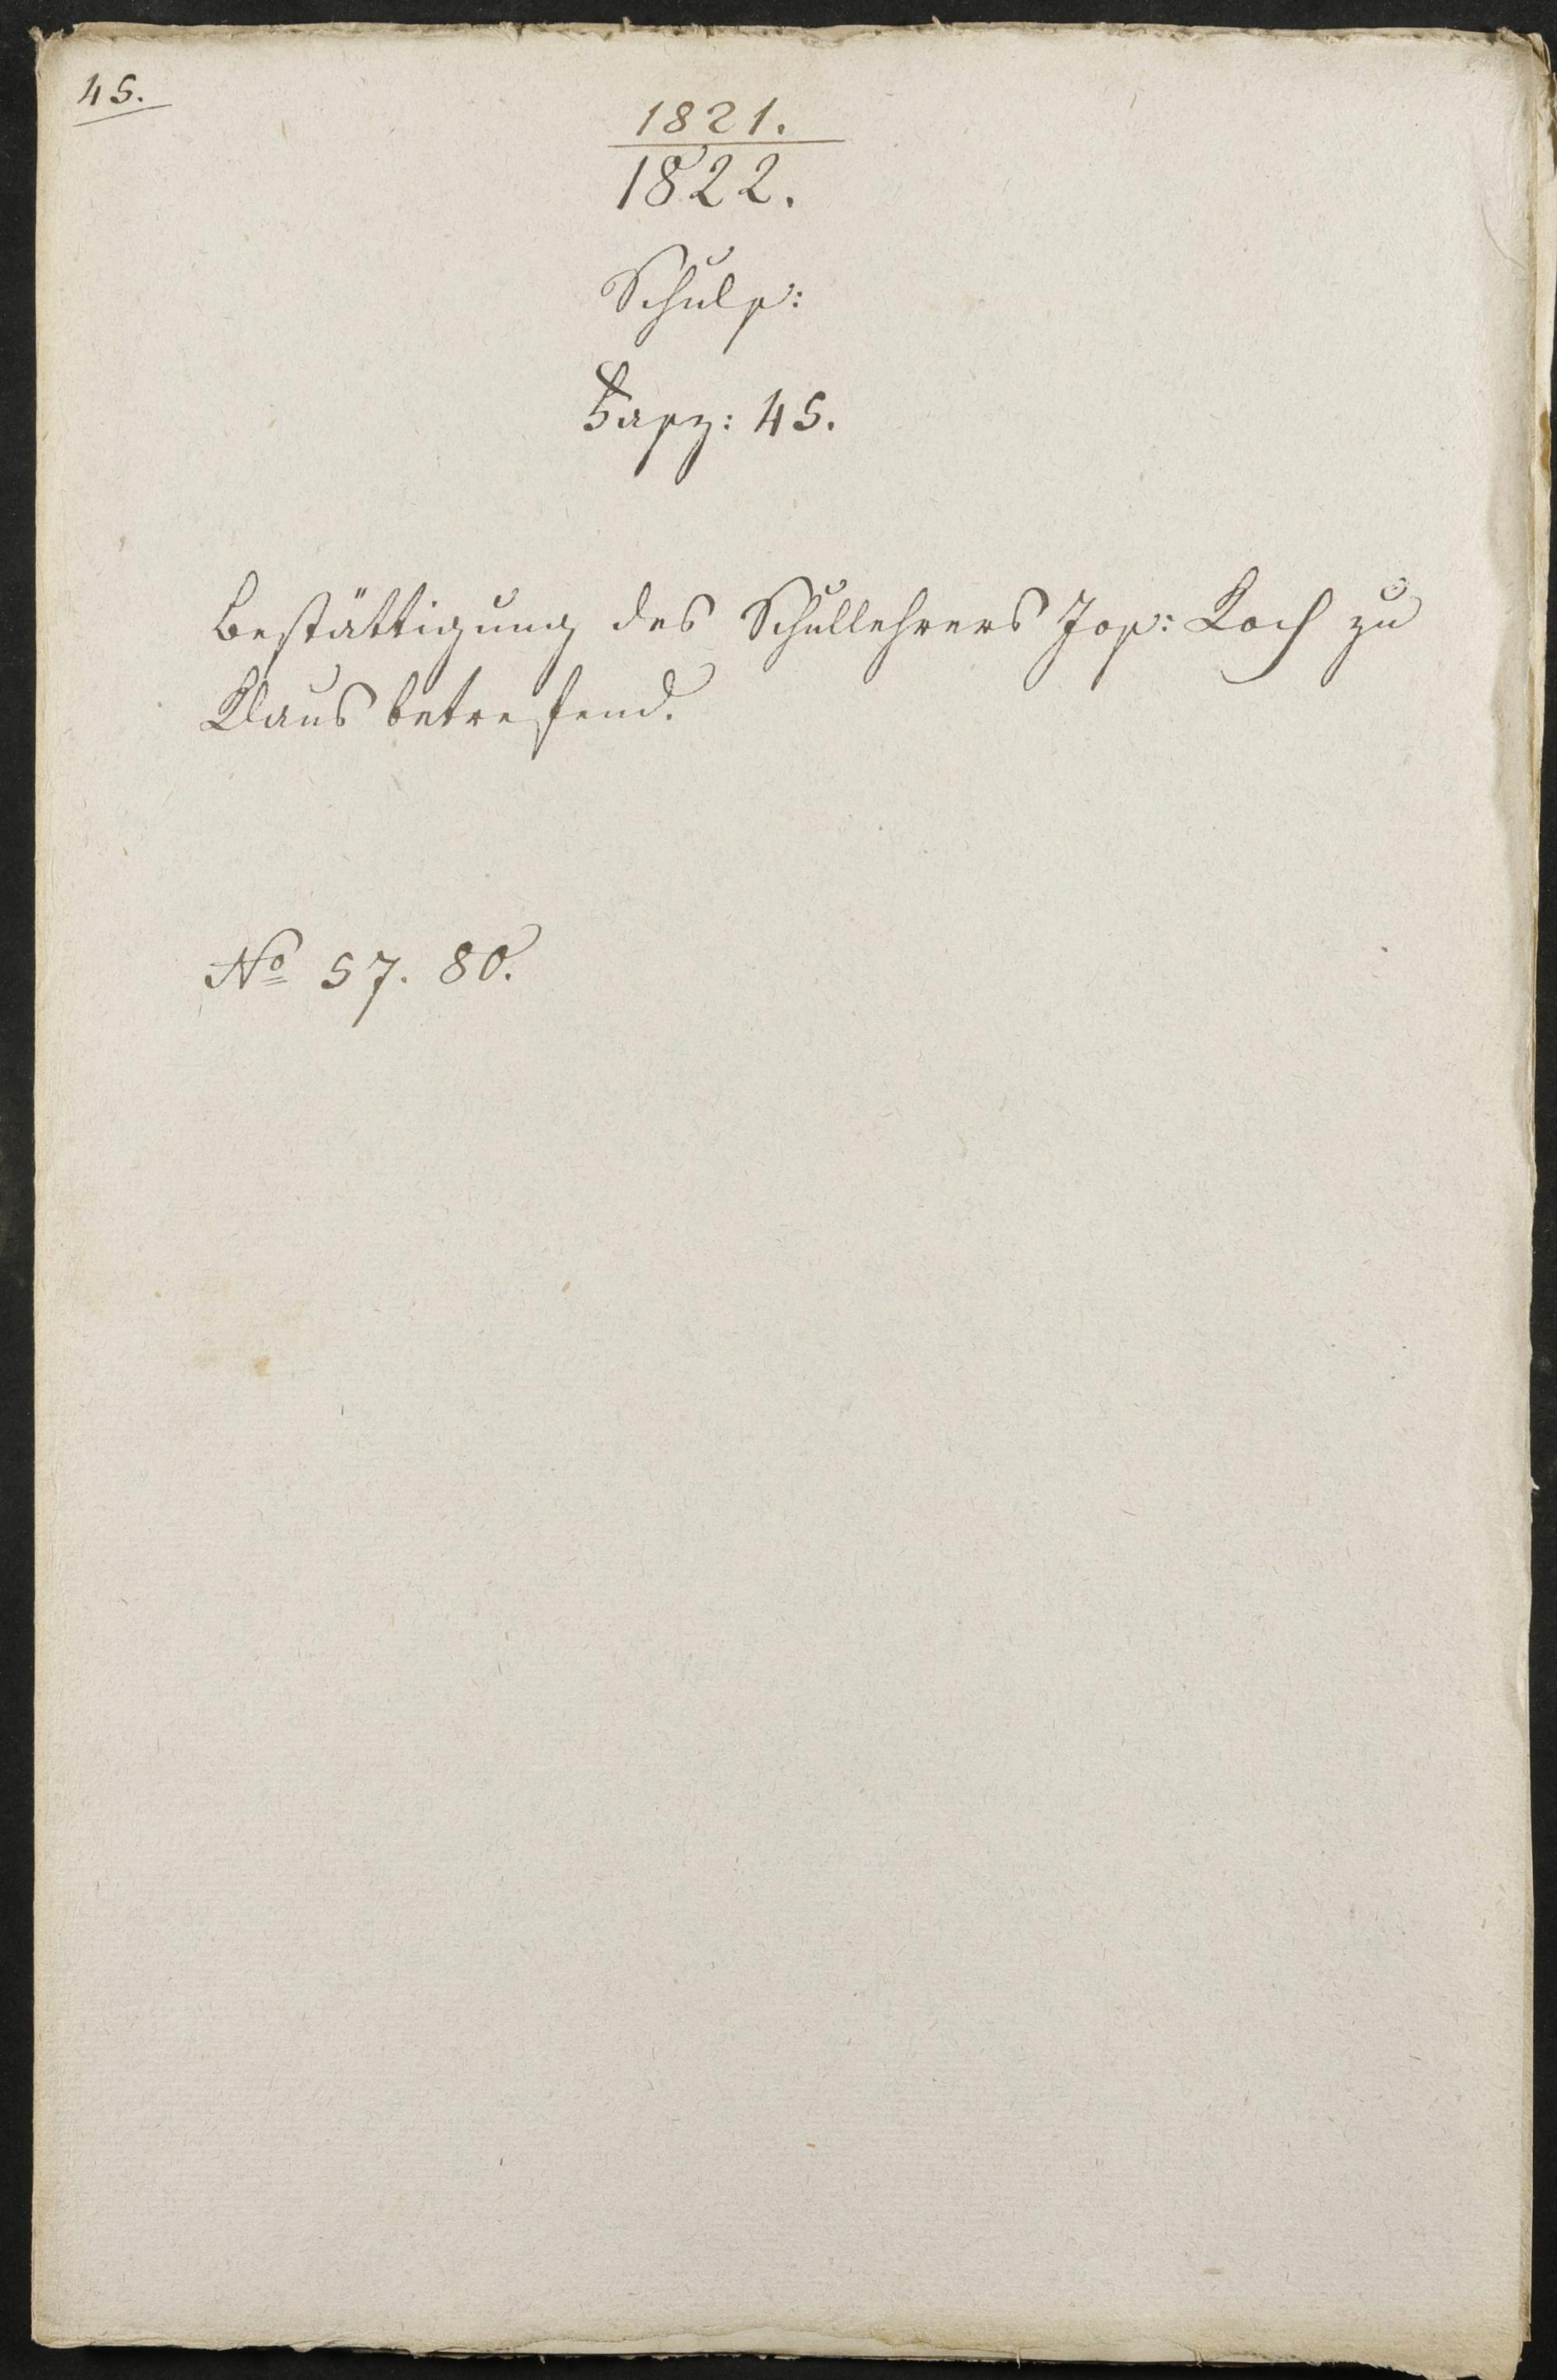 45.
1821.
1822.
Schuls:
Fasz: 45.
Bestättigung des Schullehrers Jos: Koch zu
Klaus betreffend.
No 57. 80.